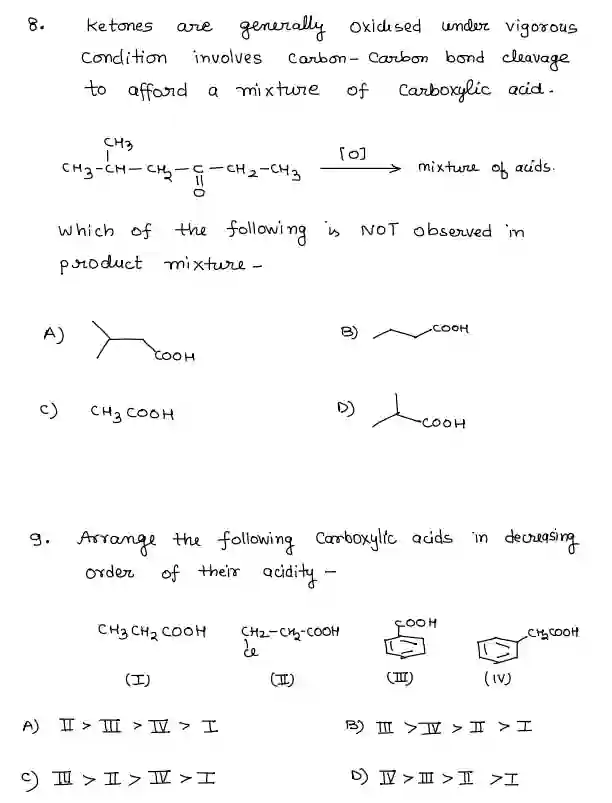 8. Ketones are generally oxidised under vigorous
Condition involves Carbon-Carbon bond cleavage
to afford a mixture of Carboxylic acid.
CH3
CH3-CH-CH2-C-CH2-CH3 [O] mixture of acids.
O
which of the following is NOT observed in
product mixture-
A) COOH B) COOH
C) CH3COOH D) COOH
9. Arrange the following Carboxylic acids in decreasing
order of their acidity-
CH3CH2COOH CH2-CH2-COOH COOH CH2COOH
(I) (II) (III) (IV)
A) II > III > IV > I B) III > IV > II > I
C) III > II > IV > I D) IV > III > II > I